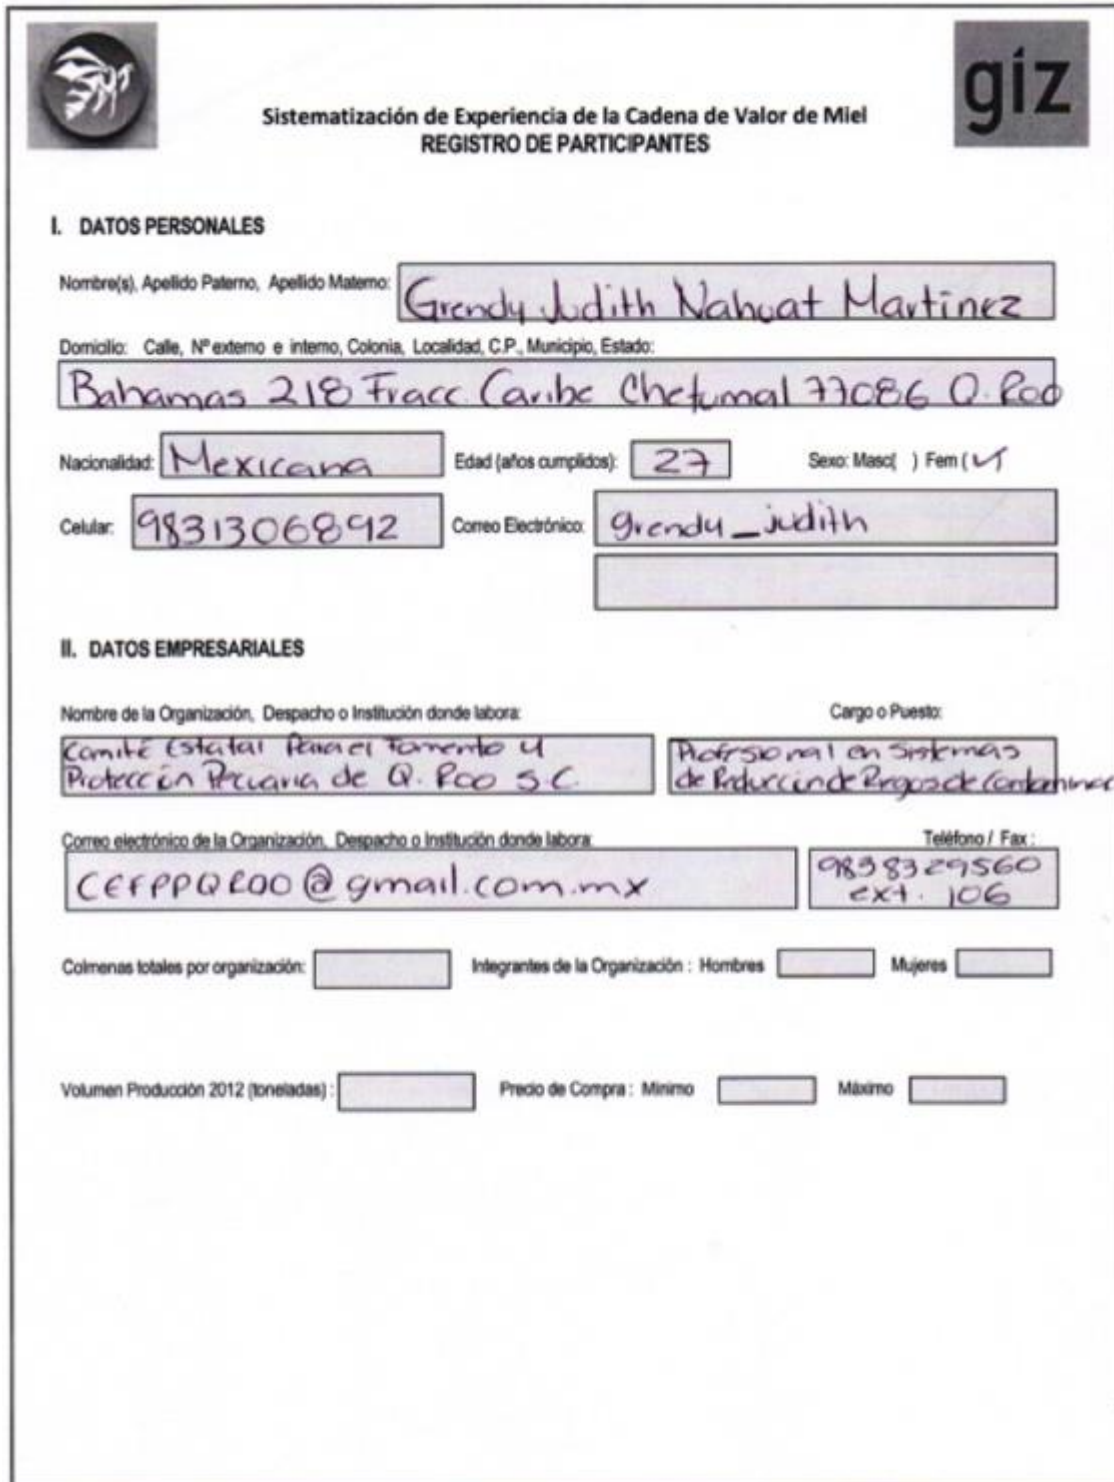 giz
Sistematización de Experiencia de la Cadena de Valor de Miel
REGISTRO DE PARTICIPANTES
I. DATOS PERSONALES
Nombre(s), Apellido Paterno, Apellido Materno: Grendy Judith Nahuat Martinez
Domicilio: Calle, Nº externo e interno, Colonia, Localidad, C.P., Municipio, Estado:
Bahamas 218 Fracc. Caribe Chetumal 77086 Q. Roo
Nacionalidad: Mexicana Edad (años cumplidos): 27 Sexo: Masc( ) Fem (✓)
Celular: 9831306892 Correo Electrónico: grendy_judith
II. DATOS EMPRESARIALES
Nombre de la Organización, Despacho o Institución donde labora: Cargo o Puesto:
Comité Estatal Para el Fomento y Profesional en Sistemas
Protección Pecuaria de Q. Roo S.C. de Reducción de Riesgos de
Correo electrónico de la Organización, Despacho o Institución donde labora: Teléfono / Fax :
CEFPPQROO@gmail.com.mx 9838329560
ext. 106
Colmenas totales por organización: Integrantes de la Organización : Hombres Mujeres
Volumen Producción 2012 (toneladas) : Precio de Compra : Mínimo Máximo